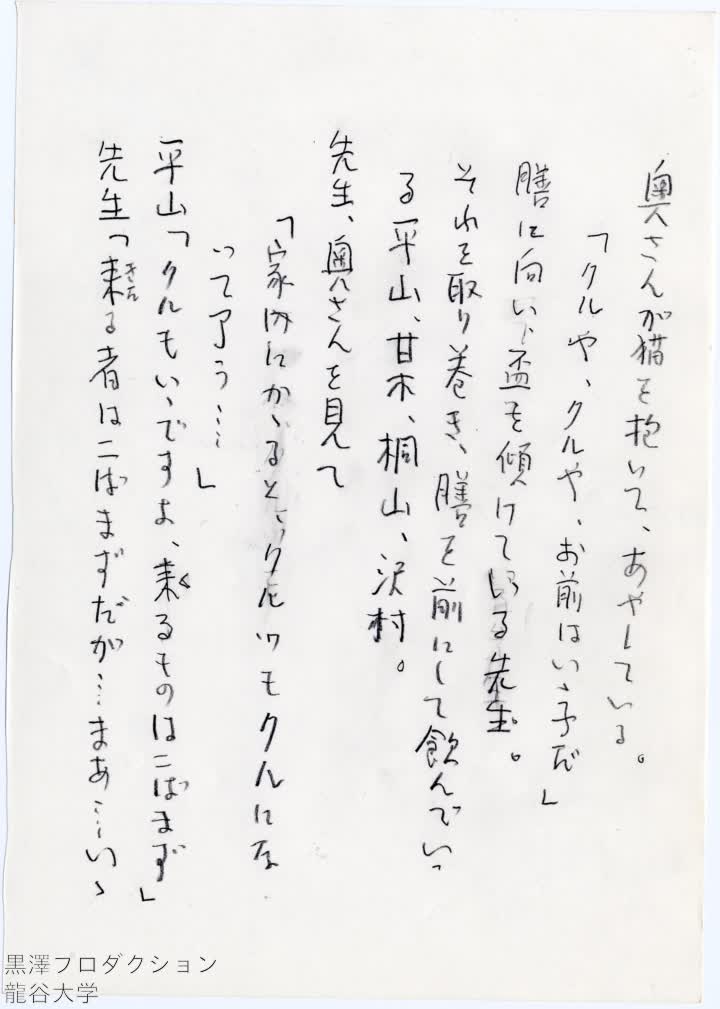 奥さんが猫を抱いて、あやしている。
「クルや、クルや、お前はいゝ子だ」
膳に向い、盃を傾けている先生。
それを取り巻き、膳を前にして飲んでい
る平山、甘木、桐山、沢村。
先生、奥さんを見て
「家内にかゝると、クルツもクルにな
って了う…」
平山「クルもいゝですよ、来るものはこばまず」
く
先生「来る者はこばまずだが…まあ…いゝ
きた
黒澤プロダクション
龍谷大学